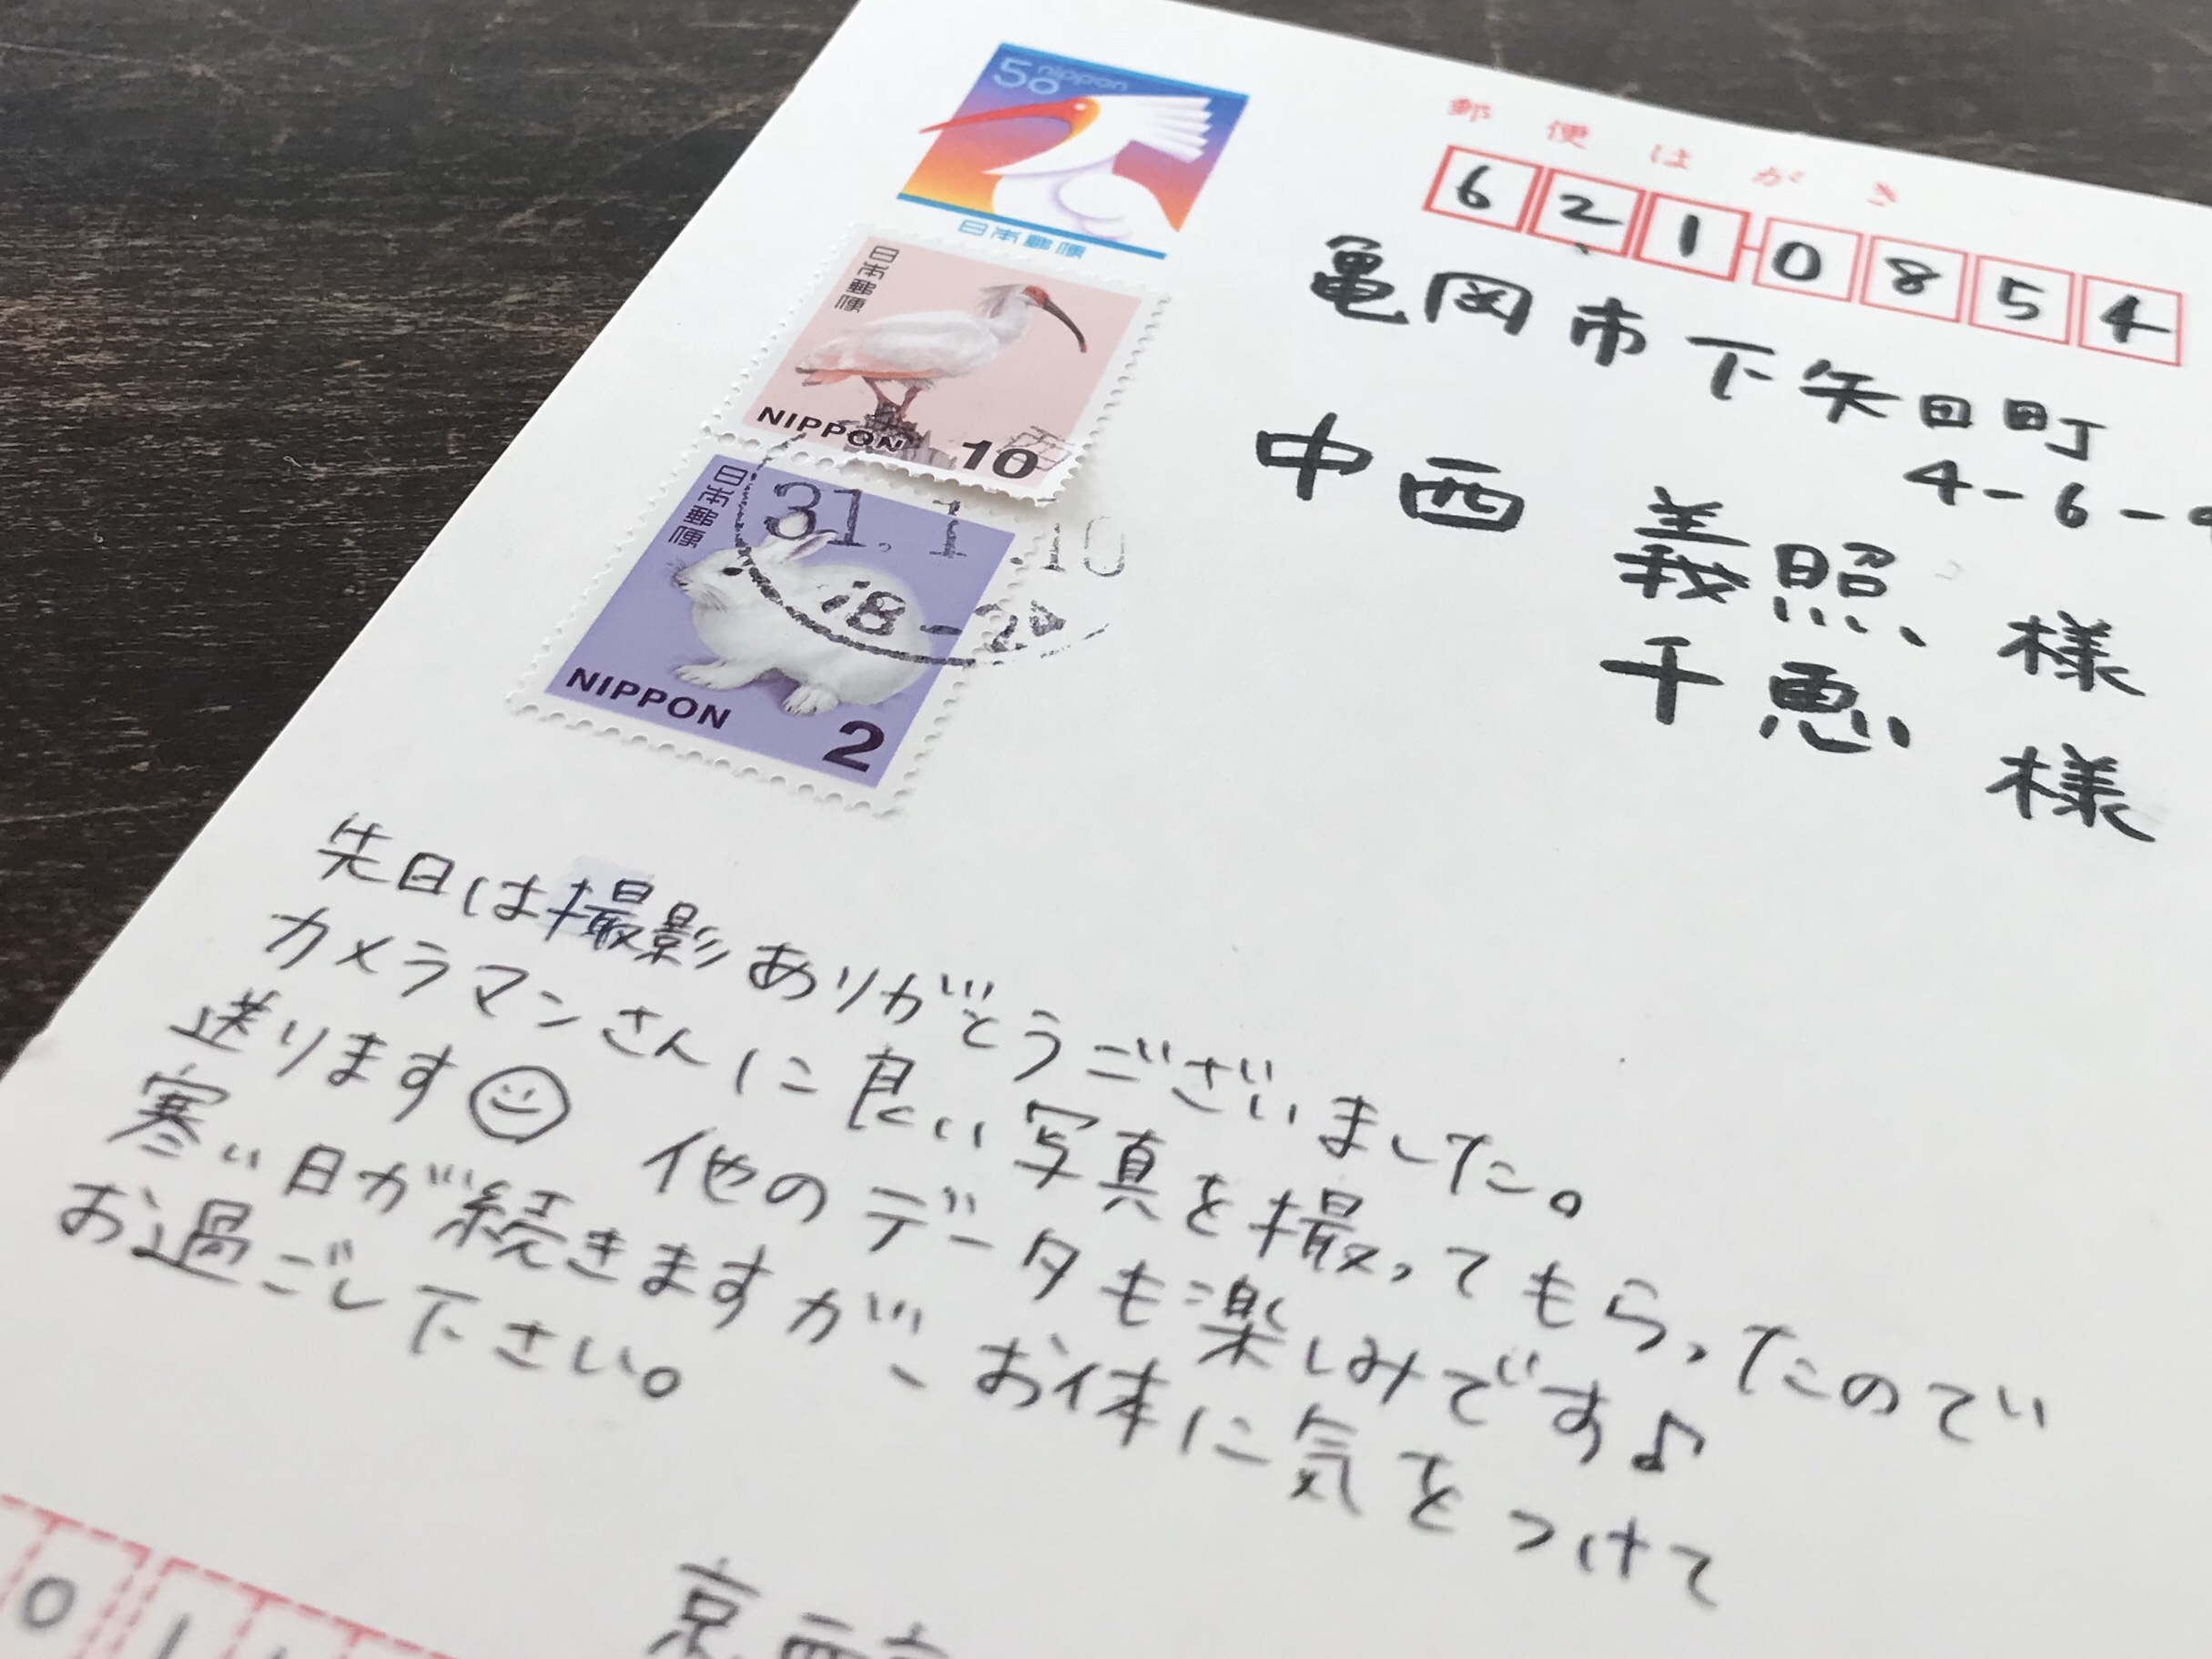 50 nippon
日本郵便
日本郵便
NIPPON 10
日本郵便
31.1.10
18-24
NIPPON 2
郵便はがき
6210854
亀岡市下矢田町
4-6-
中西 義照、様
千恵 様
先日は撮影ありがとうございました。
カメラマンさんに良い写真を撮ってもらったので
送ります☺ 他のデータも楽しみです♪
寒い日が続きますが、お体に気をつけて
お過ごし下さい。
0 1